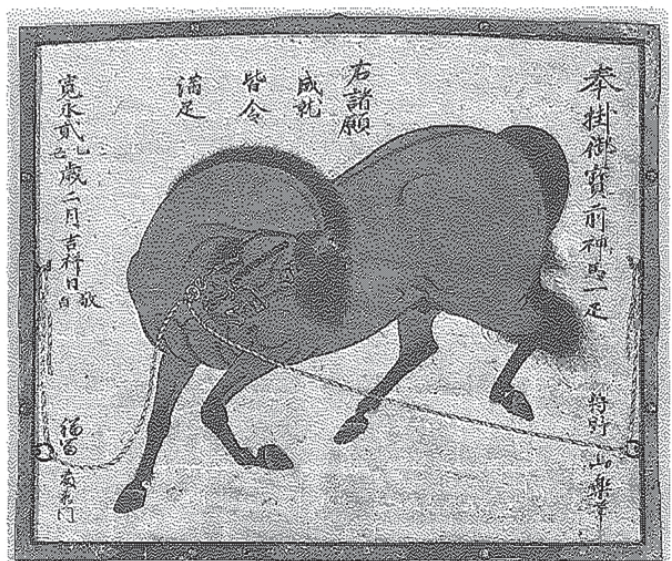 奉掛御寳前神馬一疋
山楽筆
右諸願
成就
皆令
満足
寛永貳乙丑歳二月吉祥日敬白
門